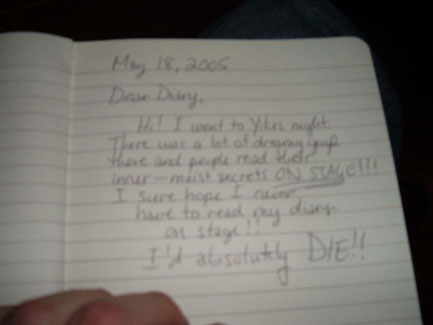 May 18, 2005
Dear Diary,
Hi! I went to Yikes night.
There was a lot of dreamy guys
there and people read their
inner-most secrets ON STAGE!!!
I sure hope I never
have to read my diary
on stage!!
I'd absolutely DIE!!